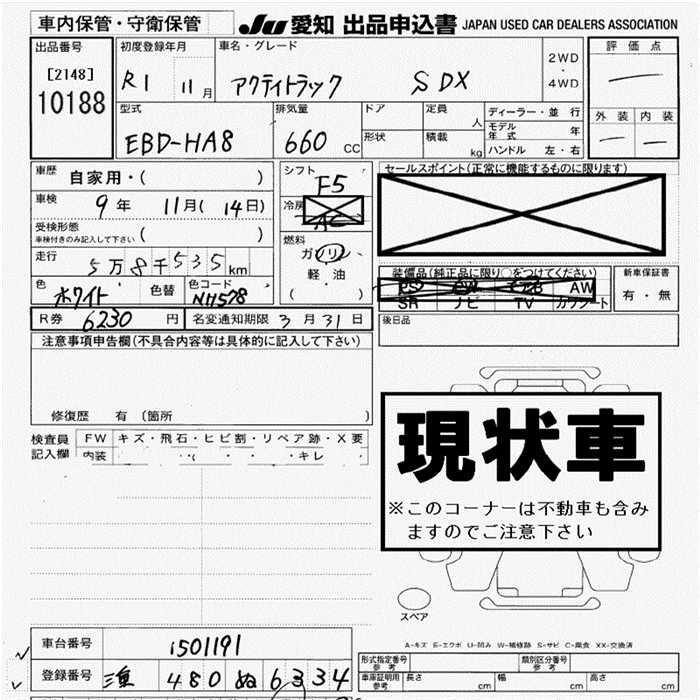 車内保管・守衛保管
JU 愛知 出品申込書 JAPAN USED CAR DEALERS ASSOCIATION
出品番号
[2148]
10188
初度登録年月
R1 11月
車名・グレード
アクティトラック SDX
2WD
・
4WD
評価点
外装 内装
型式
EBD-HA8
排気量
660 CC
ドア
形状
定員
人
積載
kg
ディーラー・並行
モデル年式 年
ハンドル 左・右
車歴
自家用・( )
車検
9年 11月(14日)
受検形態
車検付きのみ記入して下さい ( )
走行
5万8千535km
色
ホワイト
色替
色コード
NH578
シフト
F5
冷房
AC
燃料
ガソリン
軽油
( ・ )
セールスポイント(正常に機能するものに限ります)
装備品(純正品に限り○をつけてください)
PS PW AW
SR ナビ TV カワシート
新車保証書
有・無
R券 6230 円
名変通知期限 3月31日
後日品
注意事項申告欄(不具合内容等は具体的に記入して下さい)
修復歴 有 (箇所 )
検査員
記入欄
FW キズ・飛石・ヒビ割・リペア跡・X要
内装 キレ
現状車
※このコーナーは不動車も含み
ますのでご注意下さい
スペア
A-キズ E-エクボ U-凹み W-補修跡 S-サビ C-腐食 XX-交換済
車台番号 1501191
登録番号 三重 480 ぬ 6334
形式指定番号
参考
類別区分番号
参考
車庫証明用
参考
長さ cm 幅 cm 高さ cm